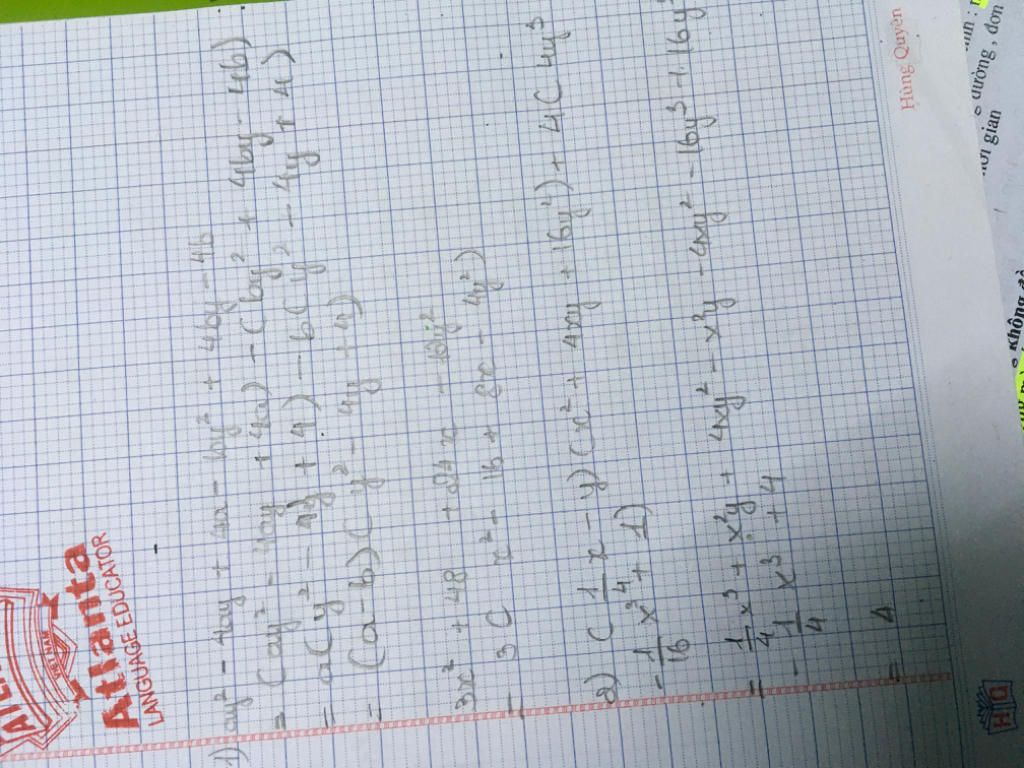 Atlanta
LANGUAGE EDUCATOR
VIỆT NAM
1) ay² - 4ay + 4a - by² + 4by - 4b
= (ay² - 4ay + 4a) - (by² + 4by - 4b)
= a(y² - 4y + 4) - b(y² - 4y + 4)
= (a-b)(y² - 4y + 4)
3x² + 48 + 24x - 12y²
= 3( x² - 16 + 8x - 4y²)
2) (1/4 x - y)(x² + 4xy + 16y²) + 4(4y³
- 1/16 x³ + 1)
= 1/4 x³ + x²y + 4xy² - x²y - 4xy² - 16y³ + 16y³
- 1/4 x³ + 4
= 4
Hùng Quyên
HQ
đường, đơn
gian
Không